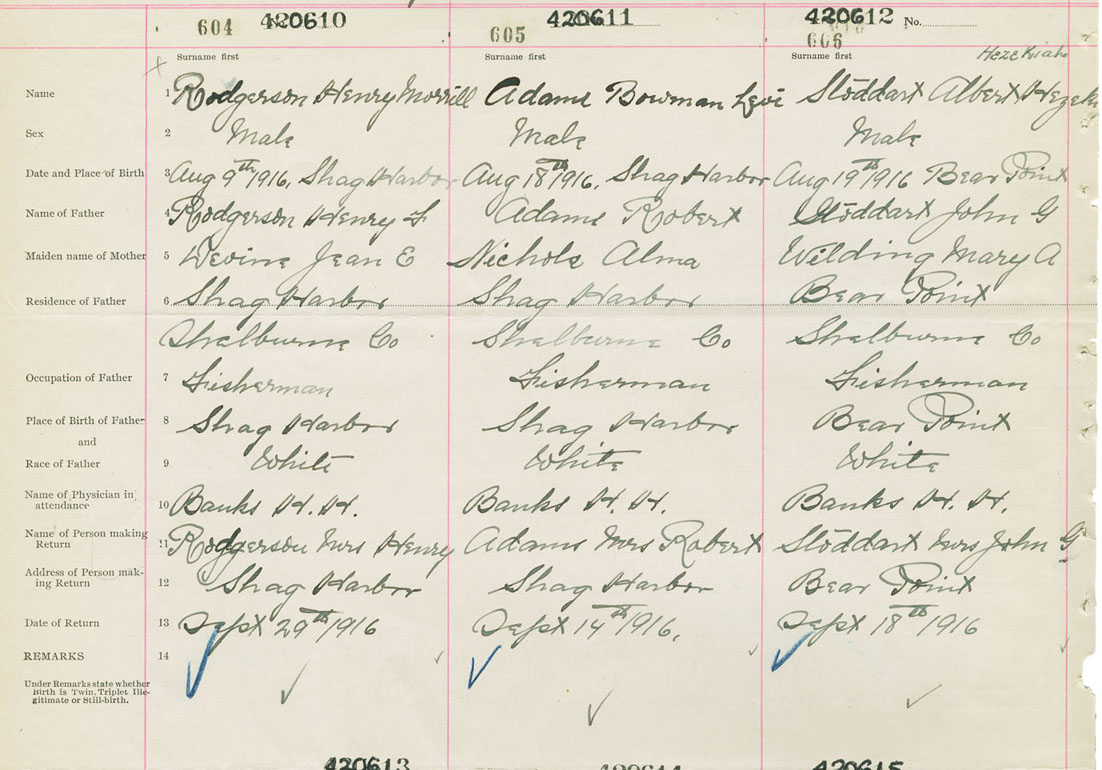 604 420610 605 420611 606 420612 No.
Surname first Surname first Surname first Hezekiah
Name 1 Rodgerson Henry Morrill Adams Bowman Levi Stoddart Albert Hezek
Sex 2 Male Male Male
Date and Place of Birth 3 Aug 9th 1916, Shag Harbor Aug 18th 1916, Shag Harbor Aug 19th 1916 Bear Point
Name of Father 4 Rodgerson Henry F Adams Robert Stoddart John G
Maiden name of Mother 5 Devine Jean E Nichols Alma Wilding Mary A
Residence of Father 6 Shag Harbor Shag Harbor Bear Point
Shelburne Co Shelburne Co Shelburne Co
Occupation of Father 7 Fisherman Fisherman Fisherman
Place of Birth of Father 8 Shag Harbor Shag Harbor Bear Point
and
Race of Father 9 White White White
Name of Physician in
attendance 10 Banks H. H. Banks H. H. Banks H. H.
Name of Person making
Return 11 Rodgerson Mrs Henry Adams Mrs Robert Stoddart Mrs John G
Address of Person mak-
ing Return 12 Shag Harbor Shag Harbor Bear Point
Date of Return 13 Sept 29th 1916 Sept 14th 1916, Sept 18th 1916
REMARKS 14
Under Remarks state whether
Birth is Twin, Triplet Ille-
gitimate or Still-birth.
420613 420614 420615